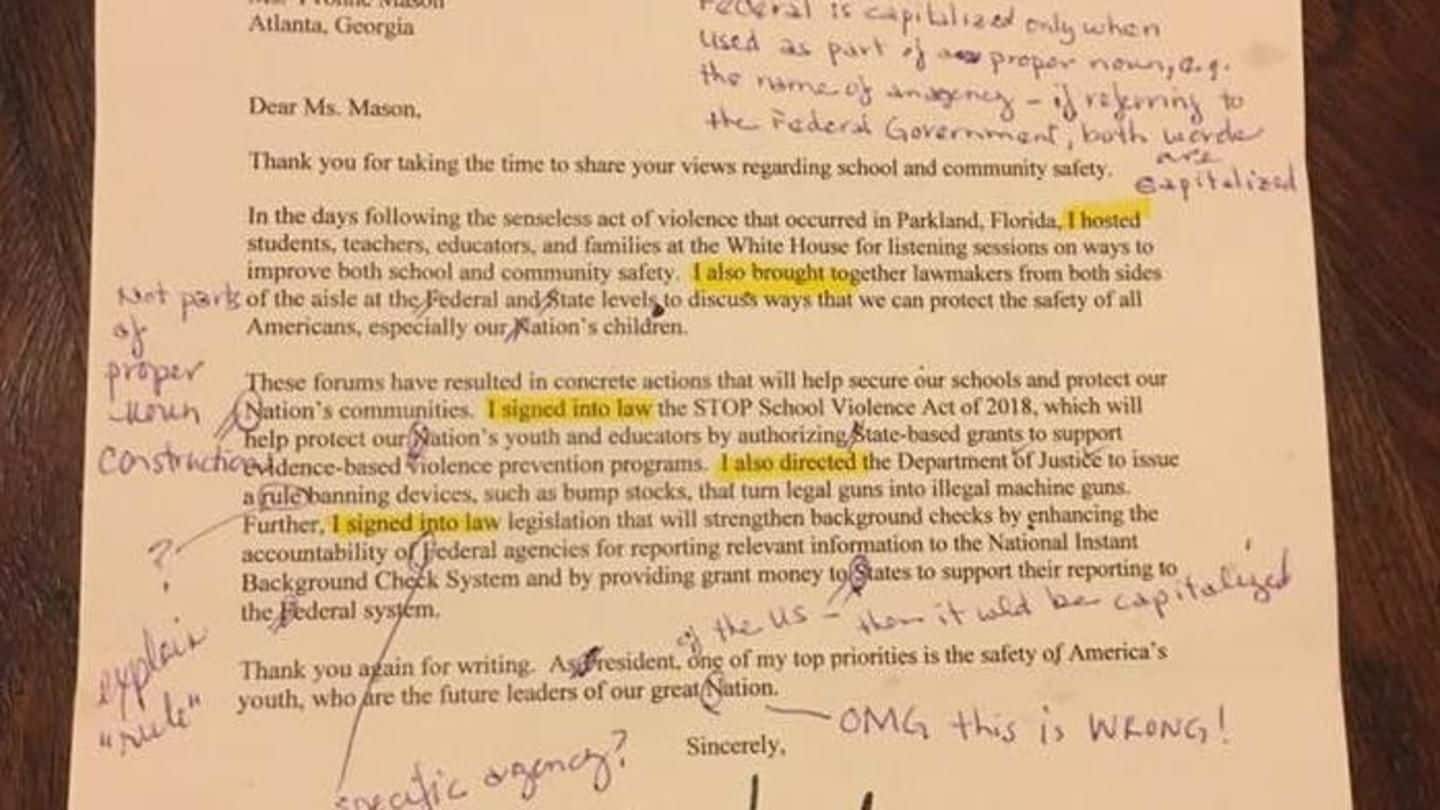 Ms. Yvonne Mason
Atlanta, Georgia
Federal is capitalized only when
used as part of a proper noun, e.g.
the name of an agency – if referring to
the Federal Government, both words
are
capitalized
Dear Ms. Mason,
Thank you for taking the time to share your views regarding school and community safety.
In the days following the senseless act of violence that occurred in Parkland, Florida, I hosted
students, teachers, educators, and families at the White House for listening sessions on ways to
improve both school and community safety. I also brought together lawmakers from both sides
of the aisle at the Federal and State levels to discuss ways that we can protect the safety of all
Americans, especially our Nation's children.
Not parts
of
proper
noun
construction
These forums have resulted in concrete actions that will help secure our schools and protect our
Nation's communities. I signed into law the STOP School Violence Act of 2018, which will
help protect our Nation's youth and educators by authorizing State-based grants to support
evidence-based violence prevention programs. I also directed the Department of Justice to issue
a rule banning devices, such as bump stocks, that turn legal guns into illegal machine guns.
Further, I signed into law legislation that will strengthen background checks by enhancing the
accountability of Federal agencies for reporting relevant information to the National Instant
Background Check System and by providing grant money to States to support their reporting to
the Federal system.
?
explain
"rule"
of the US – then it wld be capitalized
Thank you again for writing. As President, one of my top priorities is the safety of America's
youth, who are the future leaders of our great Nation.
OMG this is WRONG!
Sincerely,
specific agency?